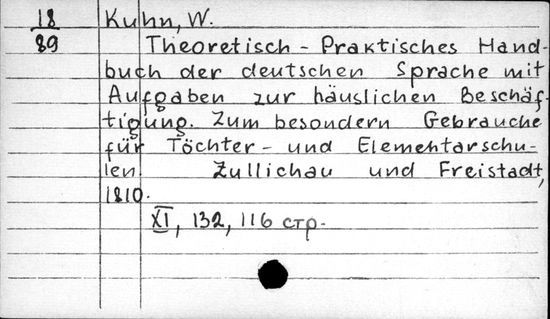 18
89
Kuhn, W.
Theoretisch - Praktisches Hand-
buch der deutschen Sprache mit
Aufgaben zur häuslichen Beschäf-
tigung. Zum besondern Gebrauche
für Töchter - und Elementarschu-
len. Zullichau und Freistadt,
1810.
XI, 132, 116 стр.